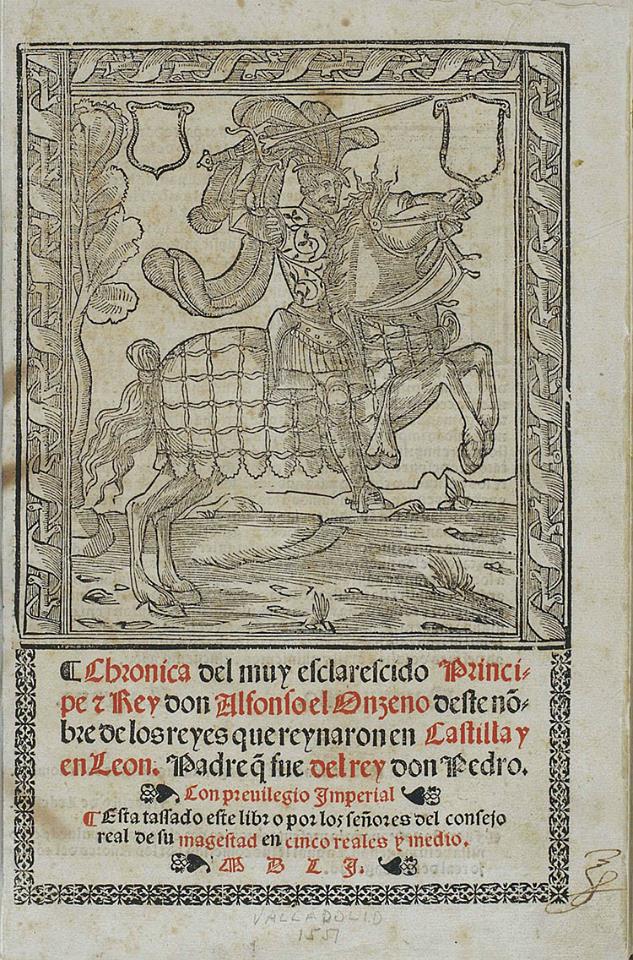 ¶ Chronica del muy esclarescido Princi-
pe ⁊ Rey don Alfonso el Onzeno deste nõ-
bre de los reyes que reynaron en Castilla y
en Leon. Padre q̃ fue del rey don Pedro.
Con preuilegio Imperial
¶ Esta tassado este libro por los señores del consejo
real de su magestad en cinco reales y medio.
M D L I.
VALLADOLID
1551